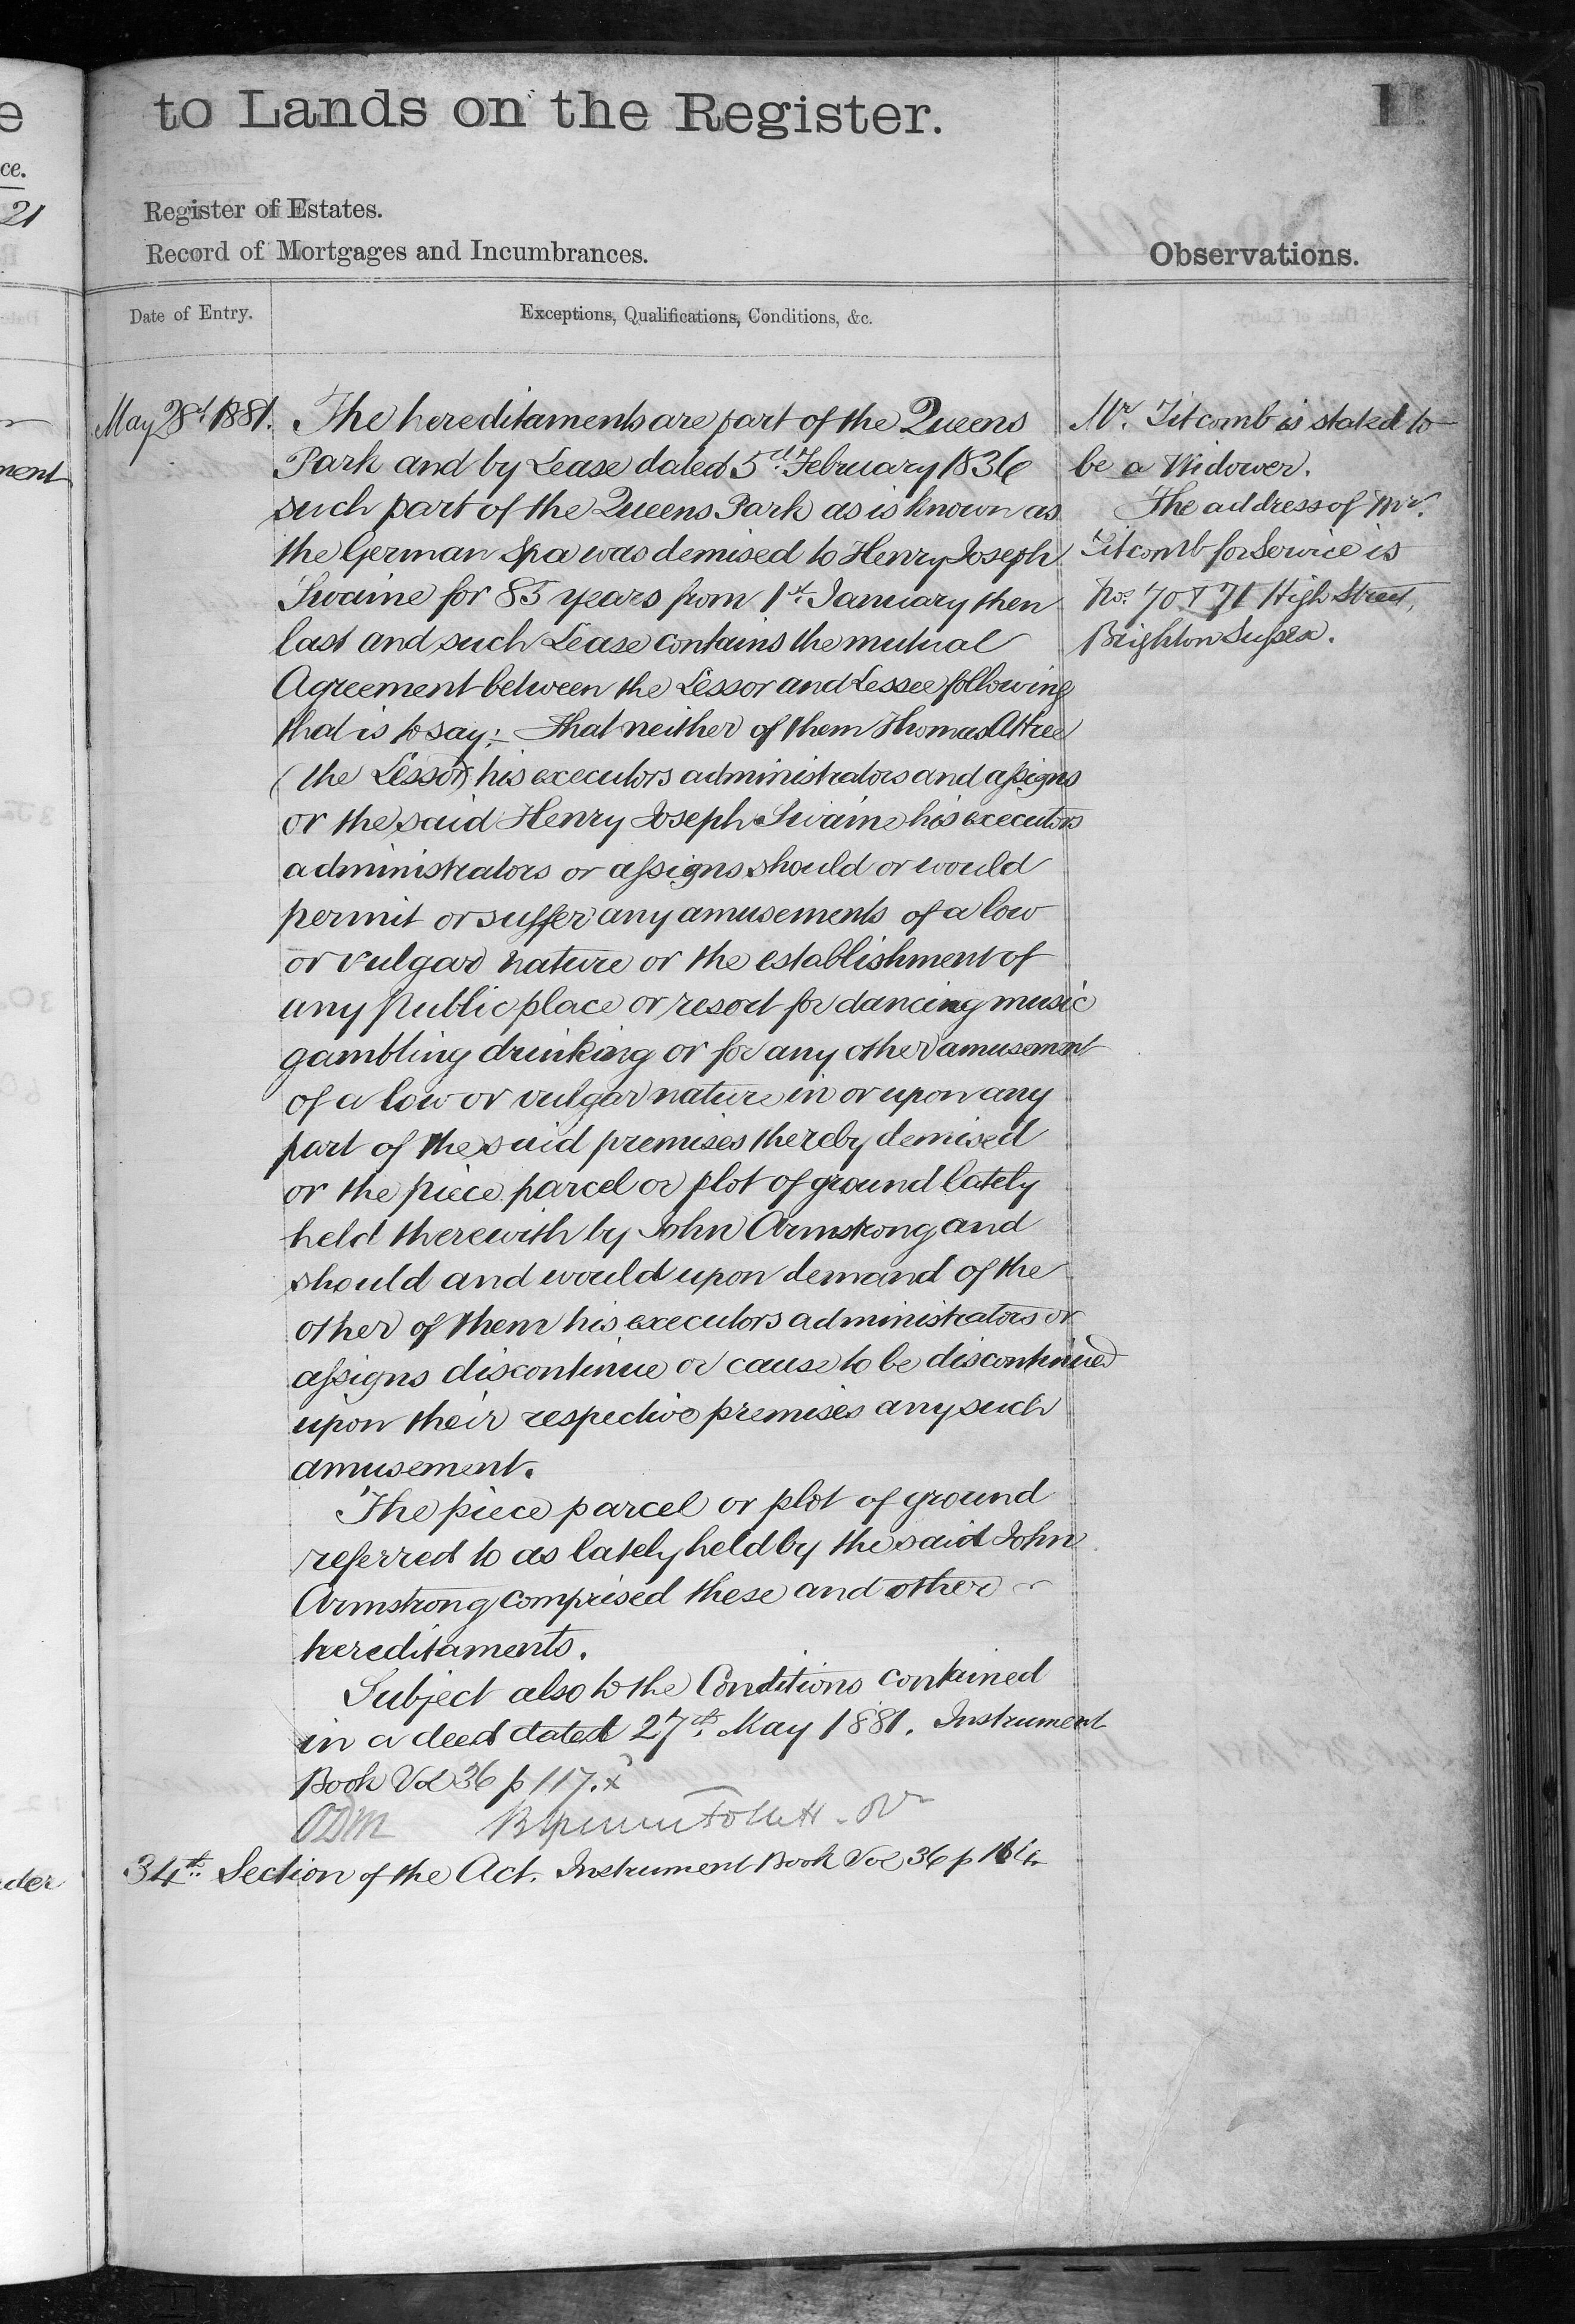 to Lands on the Register.
Register of Estates.
Record of Mortgages and Incumbrances.
Observations.
Date of Entry.
Exceptions, Qualifications, Conditions, &c.
May 28th 1881.
The hereditaments are part of the Queens
Park and by Lease dated 5th February 1836
such part of the Queens Park as is known as
the German Spa was demised to Henry Joseph
Swaine for 85 years from 1st January then
last and such Lease contains the mutual
Agreement between the Lessor and Lessee following
that is to say:- That neither of them Thomas Attree
(the Lessor) his executors administrators and assigns
or the said Henry Joseph Swaine his executors
administrators or assigns should or would
permit or suffer any amusements of a low
or vulgar nature or the establishment of
any public place or resort for dancing music
gambling drinking or for any other amusement
of a low or vulgar nature in or upon any
part of the said premises thereby demised
or the piece parcel or plot of ground lately
held therewith by John Armstrong and
should and would upon demand of the
other of them his executors administrators or
assigns discontinue or cause to be discontinued
upon their respective premises any such
amusement.
The piece parcel or plot of ground
referred to as lately held by the said John
Armstrong comprised these and other
hereditaments.
Subject also to the Conditions contained
in a deed dated 27th May 1881. Instrument
Book Vol 36 p 117. x
34th Section of the Act. Instrument Book Vol 36 p
Mr. Titcomb is stated to
be a Widower.
The address of Mr.
Titcomb for Service is
No. 70 & 71 High Street,
Brighton Sussex.
21
ce.
ment